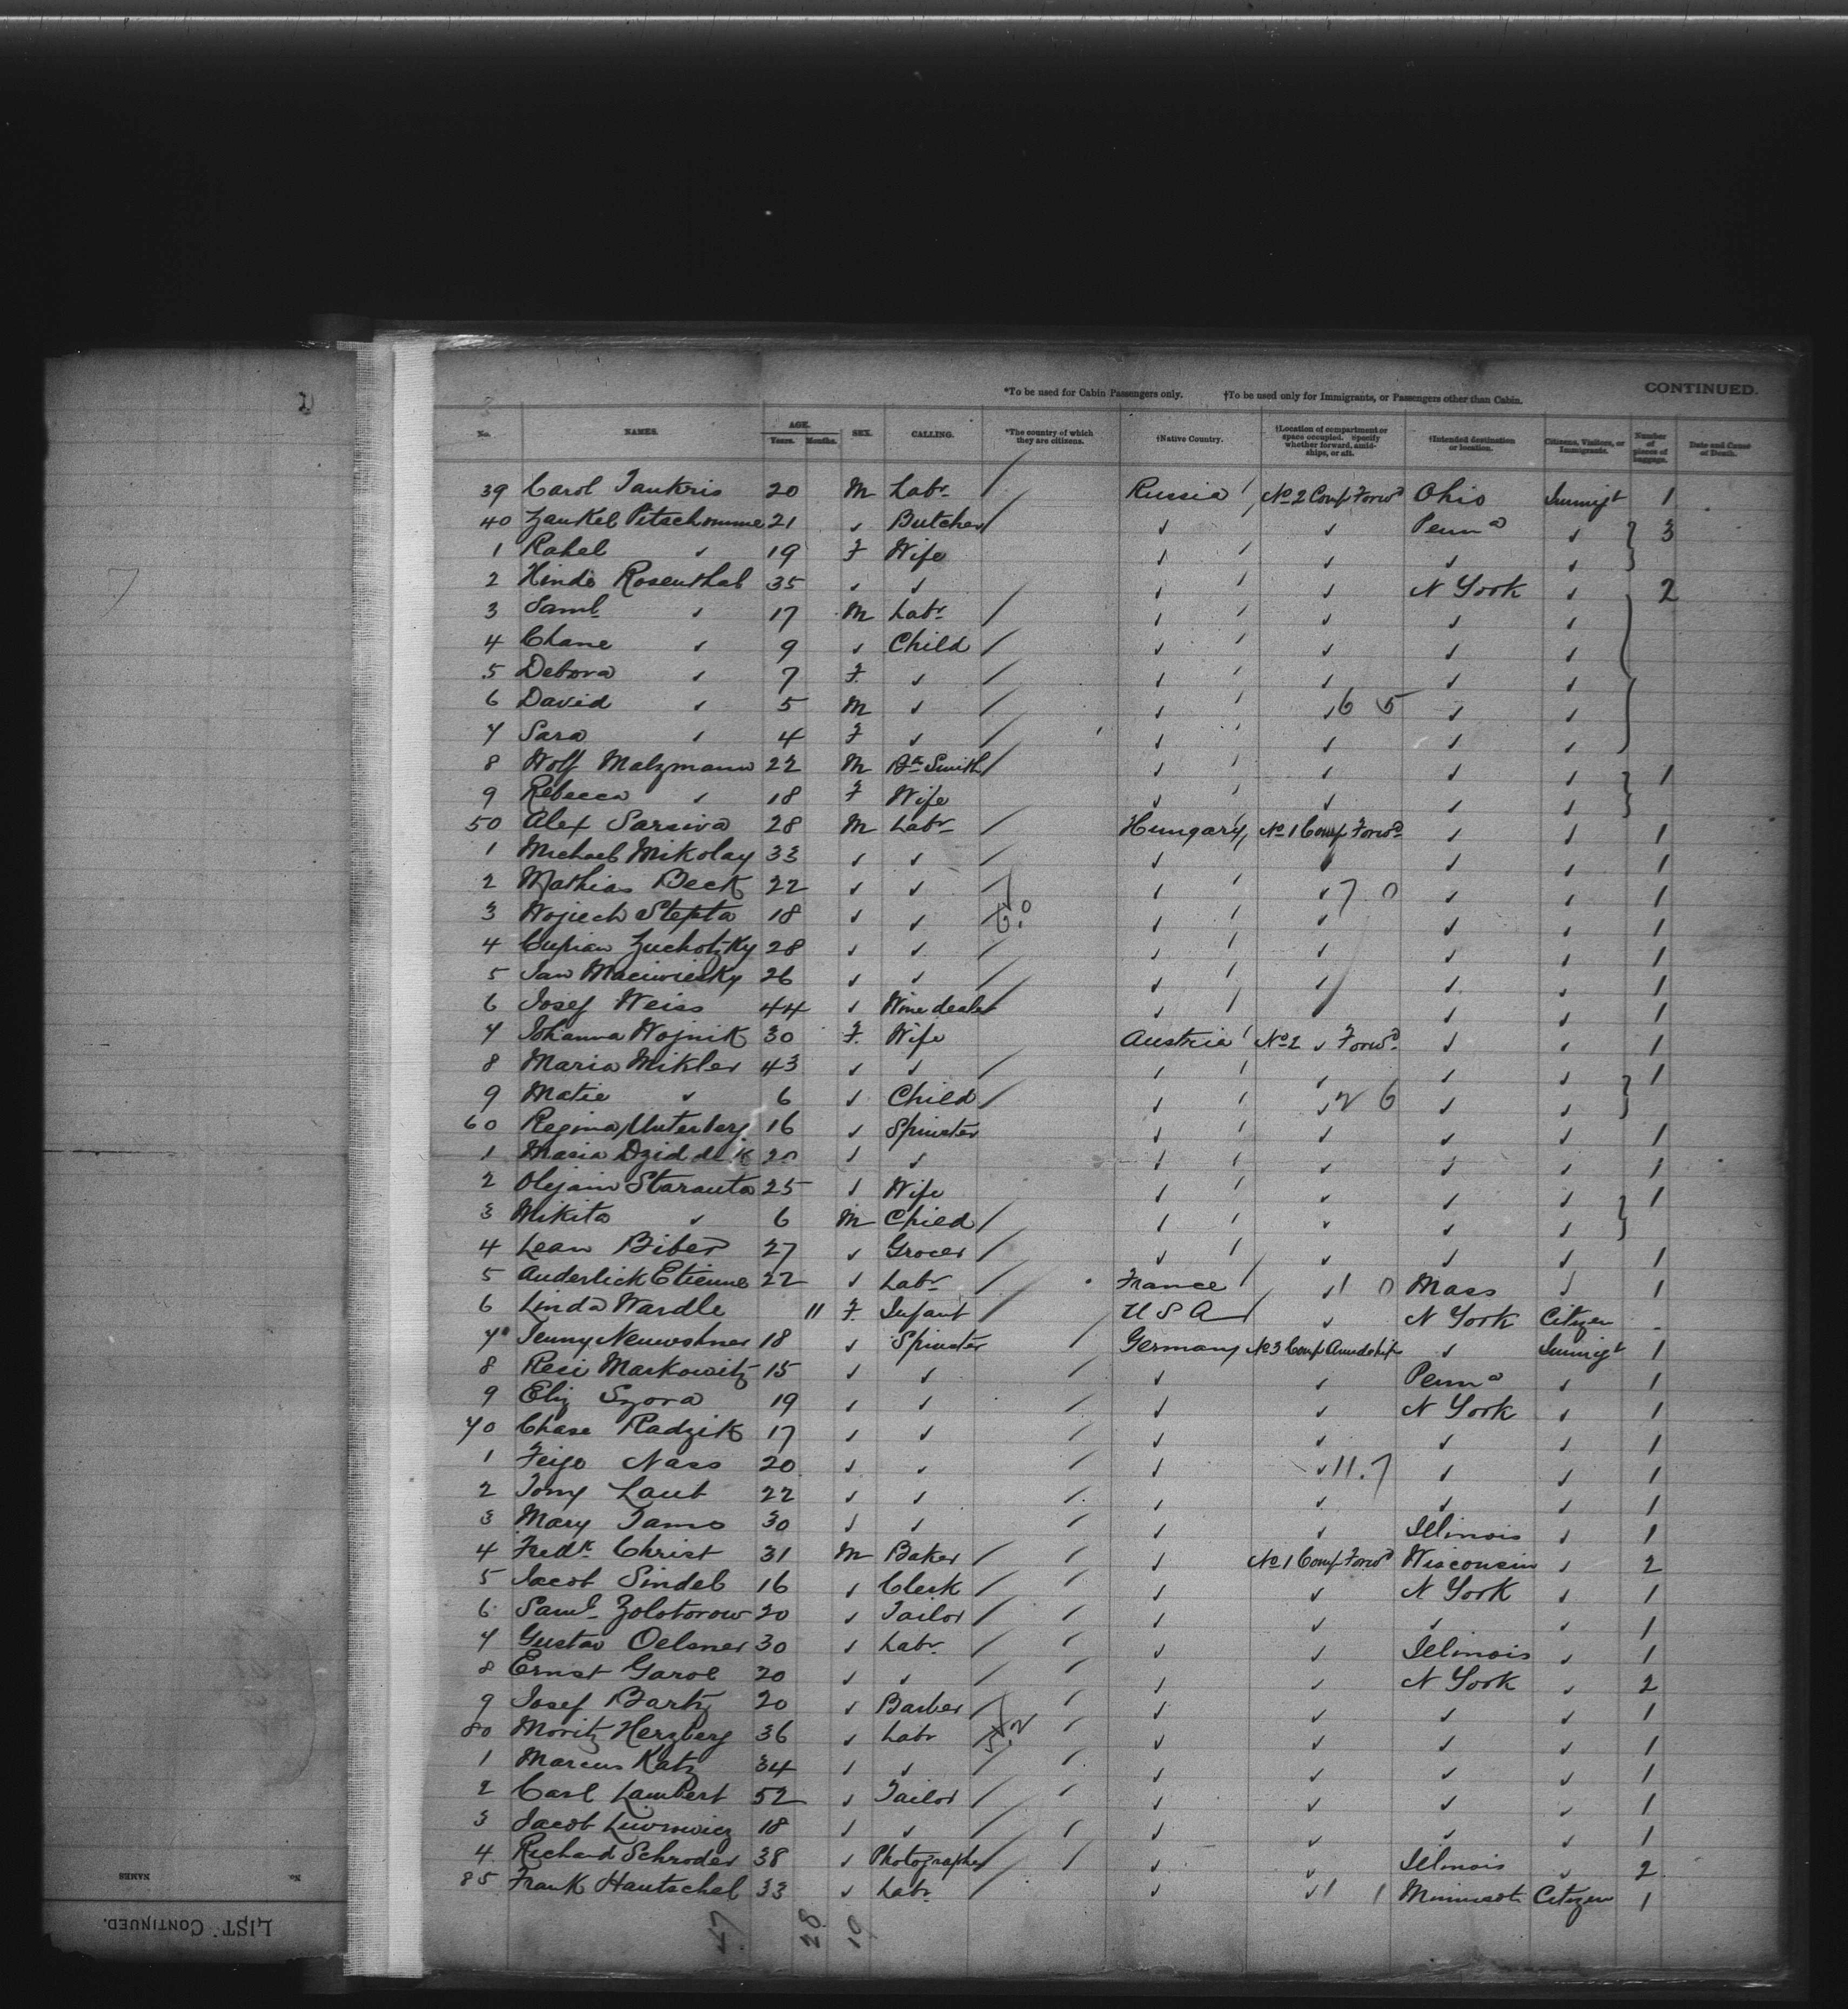 CONTINUED.
*To be used for Cabin Passengers only. †To be used only for Immigrants, or Passengers other than Cabin.
No. NAMES. AGE. Years. Months. SEX. CALLING. *The country of which they are citizens. †Native Country. †Location of compartment or space occupied. Specify whether forward, amidships, or aft. †Intended destination or location. Citizens, Visitors, or Immigrants. Number of pieces of baggage. Date and Cause of Death.
39 Carol Tankris 20 M Labr Russia No 2 Comp Forwd Ohio Immigt 1
40 Zankel Pitschomme 21 ✓ Butcher ✓ ✓ Penna ✓ 3
1 Rahel ✓ 19 F Wife ✓ ✓ ✓ ✓
2 Hinde Rosenthal 35 ✓ ✓ ✓ ✓ N York ✓ 2
3 Saml ✓ 17 M Labr ✓ ✓ ✓ ✓
4 Chane ✓ 9 ✓ Child ✓ ✓ ✓ ✓
5 Debora ✓ 7 F ✓ ✓ ✓ ✓ ✓
6 David ✓ 5 M ✓ ✓ ✓ 6 5 ✓ ✓
7 Sara ✓ 4 F ✓ ✓ ✓ ✓ ✓
8 Wolf Malzmann 22 M Bk Smith ✓ ✓ ✓ ✓ 1
9 Rebecca ✓ 18 F Wife ✓ ✓ ✓ ✓
50 Alex Sarsiva 28 M Labr Hungary No 1 Comp Forwd ✓ ✓ 1
1 Michael Mikolay 33 ✓ ✓ ✓ ✓ ✓ ✓ 1
2 Mathias Beck 22 ✓ ✓ ✓ ✓ 7 0 ✓ ✓ 1
3 Wojiech Stepta 18 ✓ ✓ ✓ ✓ ✓ ✓ 1
4 Cuprian Zuchotzky 28 ✓ ✓ ✓ ✓ ✓ ✓ 1
5 Jan Maciwiesky 26 ✓ ✓ ✓ ✓ ✓ ✓ 1
6 Josef Weiss 44 ✓ Wine dealer ✓ ✓ ✓ ✓ 1
7 Johanna Wojnik 30 F Wife Austria No 2 ✓ Forwd ✓ ✓ 1
8 Maria Mikler 43 ✓ ✓ ✓ ✓ ✓ ✓ 1
9 Matie ✓ 6 ✓ Child ✓ ✓ 2 6 ✓ ✓
60 Regina Unterberg 16 ✓ Spinster ✓ ✓ ✓ ✓ 1
1 Maria 20 ✓ ✓ ✓ ✓ ✓ ✓ 1
2 Olejain Starauta 25 ✓ Wife ✓ ✓ ✓ ✓ 1
3 Mikita ✓ 6 M Child ✓ ✓ ✓ ✓
4 Lean Biber 27 ✓ Grocer ✓ ✓ ✓ ✓ 1
5 Anderlick Etienne 22 ✓ Labr France ✓ 1 0 Mass ✓ 1
6 Linda Wardle 11 F Infant U S A ✓ N York Citizen -
7 Jenny Neuwshner 18 ✓ Spinster Germany No 3 Comp Amidships ✓ Immigt 1
8 Resi Markowitz 15 ✓ ✓ ✓ ✓ Penna ✓ 1
9 Eliz Szora 19 ✓ ✓ ✓ ✓ N York ✓ 1
70 Chase Radzik 17 ✓ ✓ ✓ ✓ ✓ ✓ 1
1 Feige Nass 20 ✓ ✓ ✓ ✓ 11.7 ✓ ✓ 1
2 Tony Laut 22 ✓ ✓ ✓ ✓ ✓ ✓ 1
3 Mary Tams 30 ✓ ✓ ✓ ✓ Illinois ✓ 1
4 Fredk Christ 31 M Baker ✓ No 1 Comp Forwd Wisconsin ✓ 2
5 Jacob Sindel 16 ✓ Clerk ✓ ✓ N York ✓ 1
6 Saml Zolotorow 20 ✓ Tailor ✓ ✓ ✓ ✓ 1
7 Gustav Oelsner 30 ✓ Labr ✓ ✓ Illinois ✓ 1
8 Ernst Garol 20 ✓ ✓ ✓ ✓ N York ✓ 2
9 Josef Bartz 20 ✓ Barber ✓ ✓ ✓ ✓ 1
80 Moritz Herzberg 36 ✓ Labr ✓ ✓ ✓ ✓ 1
1 Marcus Katz 34 ✓ ✓ ✓ ✓ ✓ ✓ 1
2 Carl Lambert 52 ✓ Tailor ✓ ✓ ✓ ✓ 1
3 Jacob 18 ✓ ✓ ✓ ✓ ✓ ✓ 1
4 Richard Schroder 38 ✓ Photographer ✓ ✓ Illinois ✓ 2
85 Frank Hautschel 33 ✓ Labr ✓ ✓ 1 1 Minnesota Citizen 1
47 28 19
No. NAMES
LIST CONTINUED.